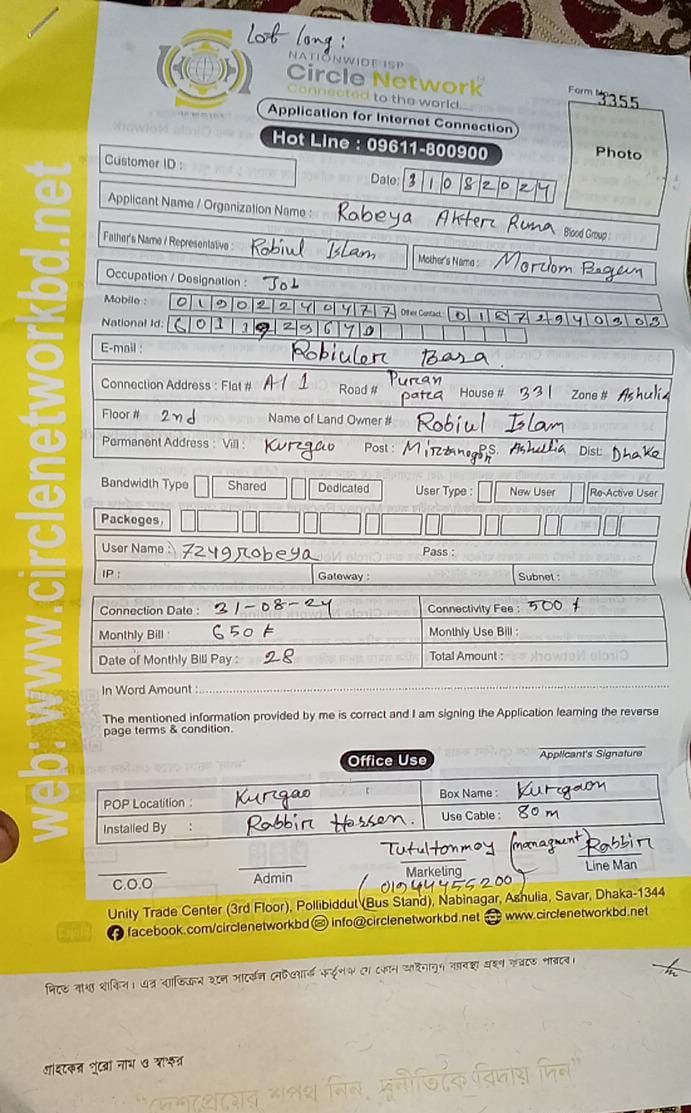 Lot long :
NATIONWIDE ISP
Circle Network
Connected to the world...
Form No 3355
Application for Internet Connection
Hot Line : 09611-800900
Photo
Customer ID :
Date: 31082024
Applicant Name / Organization Name : Rabeya Akter Runa Blood Group :
Father's Name / Representative : Robiul Islam Mother's Name :
Occupation / Designation : Job
Mobile : 01902240477 Other Contact :
National Id:
E-mail : Robiuler Basa
Connection Address : Flat # A/1 Road # Puran para House # 331 Zone # Ashulia
Floor # 2nd Name of Land Owner # Robiul Islam
Permanent Address : Vill : Kurgao Post : P.S. Ashulia Dist: Dhaka
Bandwidth Type Shared Dedicated User Type : New User Re-Active User
Packeges,
User Name : 7249rabeya Pass :
IP : Gateway : Subnet :
Connection Date : 31-08-24 Connectivity Fee : 500 t
Monthly Bill : 650 t Monthly Use Bill :
Date of Monthly Bill Pay : 28 Total Amount :
In Word Amount :
The mentioned information provided by me is correct and I am signing the Application learning the reverse
page terms & condition.
Applicant's Signature
Office Use
POP Locatition : Kurgao Box Name : Kurgaon
Installed By : Rabbir Hossen. Use Cable : 80 m
Tutultonmoy (managment) Rabbir
C.O.O Admin Marketing Line Man
(01944455200)
Unity Trade Center (3rd Floor), Pollibiddut (Bus Stand), Nabinagar, Ashulia, Savar, Dhaka-1344
facebook.com/circlenetworkbd info@circlenetworkbd.net www.circlenetworkbd.net
web: www.circlenetworkbd.net
দিতে বাধ্য থাকিব। এর ব্যতিক্রম হলে সার্কেল নেটওয়ার্ক কর্তৃপক্ষ যে কোন আইনানুগ ব্যবস্থা গ্রহণ করতে পারবে।
গ্রাহকের পুরো নাম ও স্বাক্ষর
"দেশপ্রেমের শপথ নিন, দুর্নীতিকে বিদায় দিন"